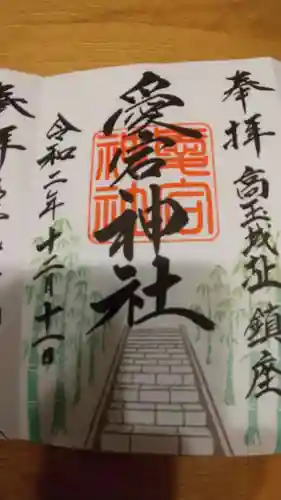 奉拝
高玉城址 鎮座
愛宕神社
令和二年十二月十一日
奉拝